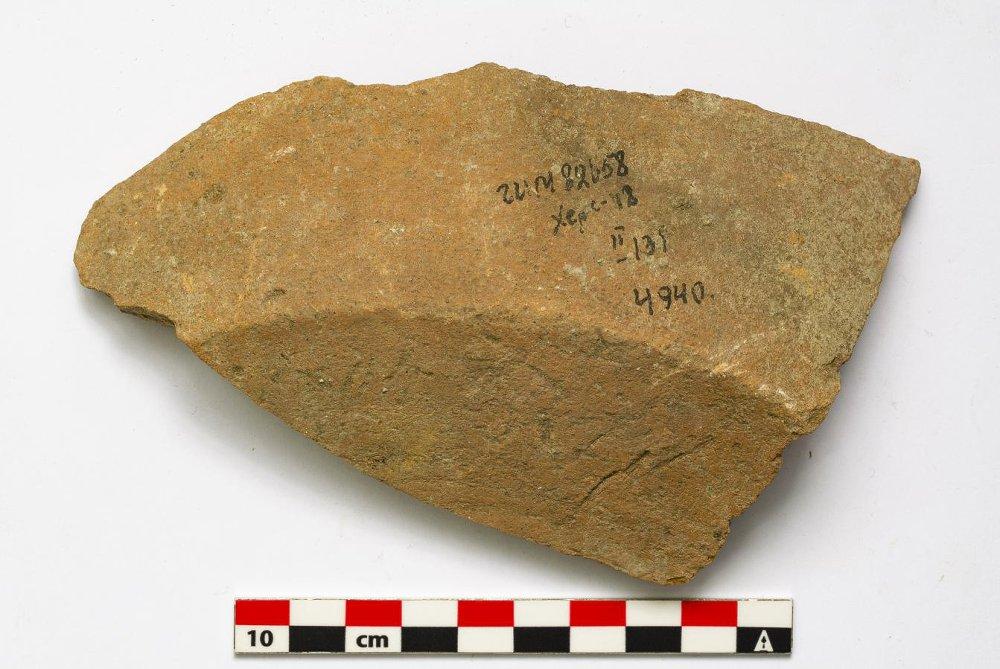 ГИМ 82658
Херс-98
II 139
4940.
10 cm